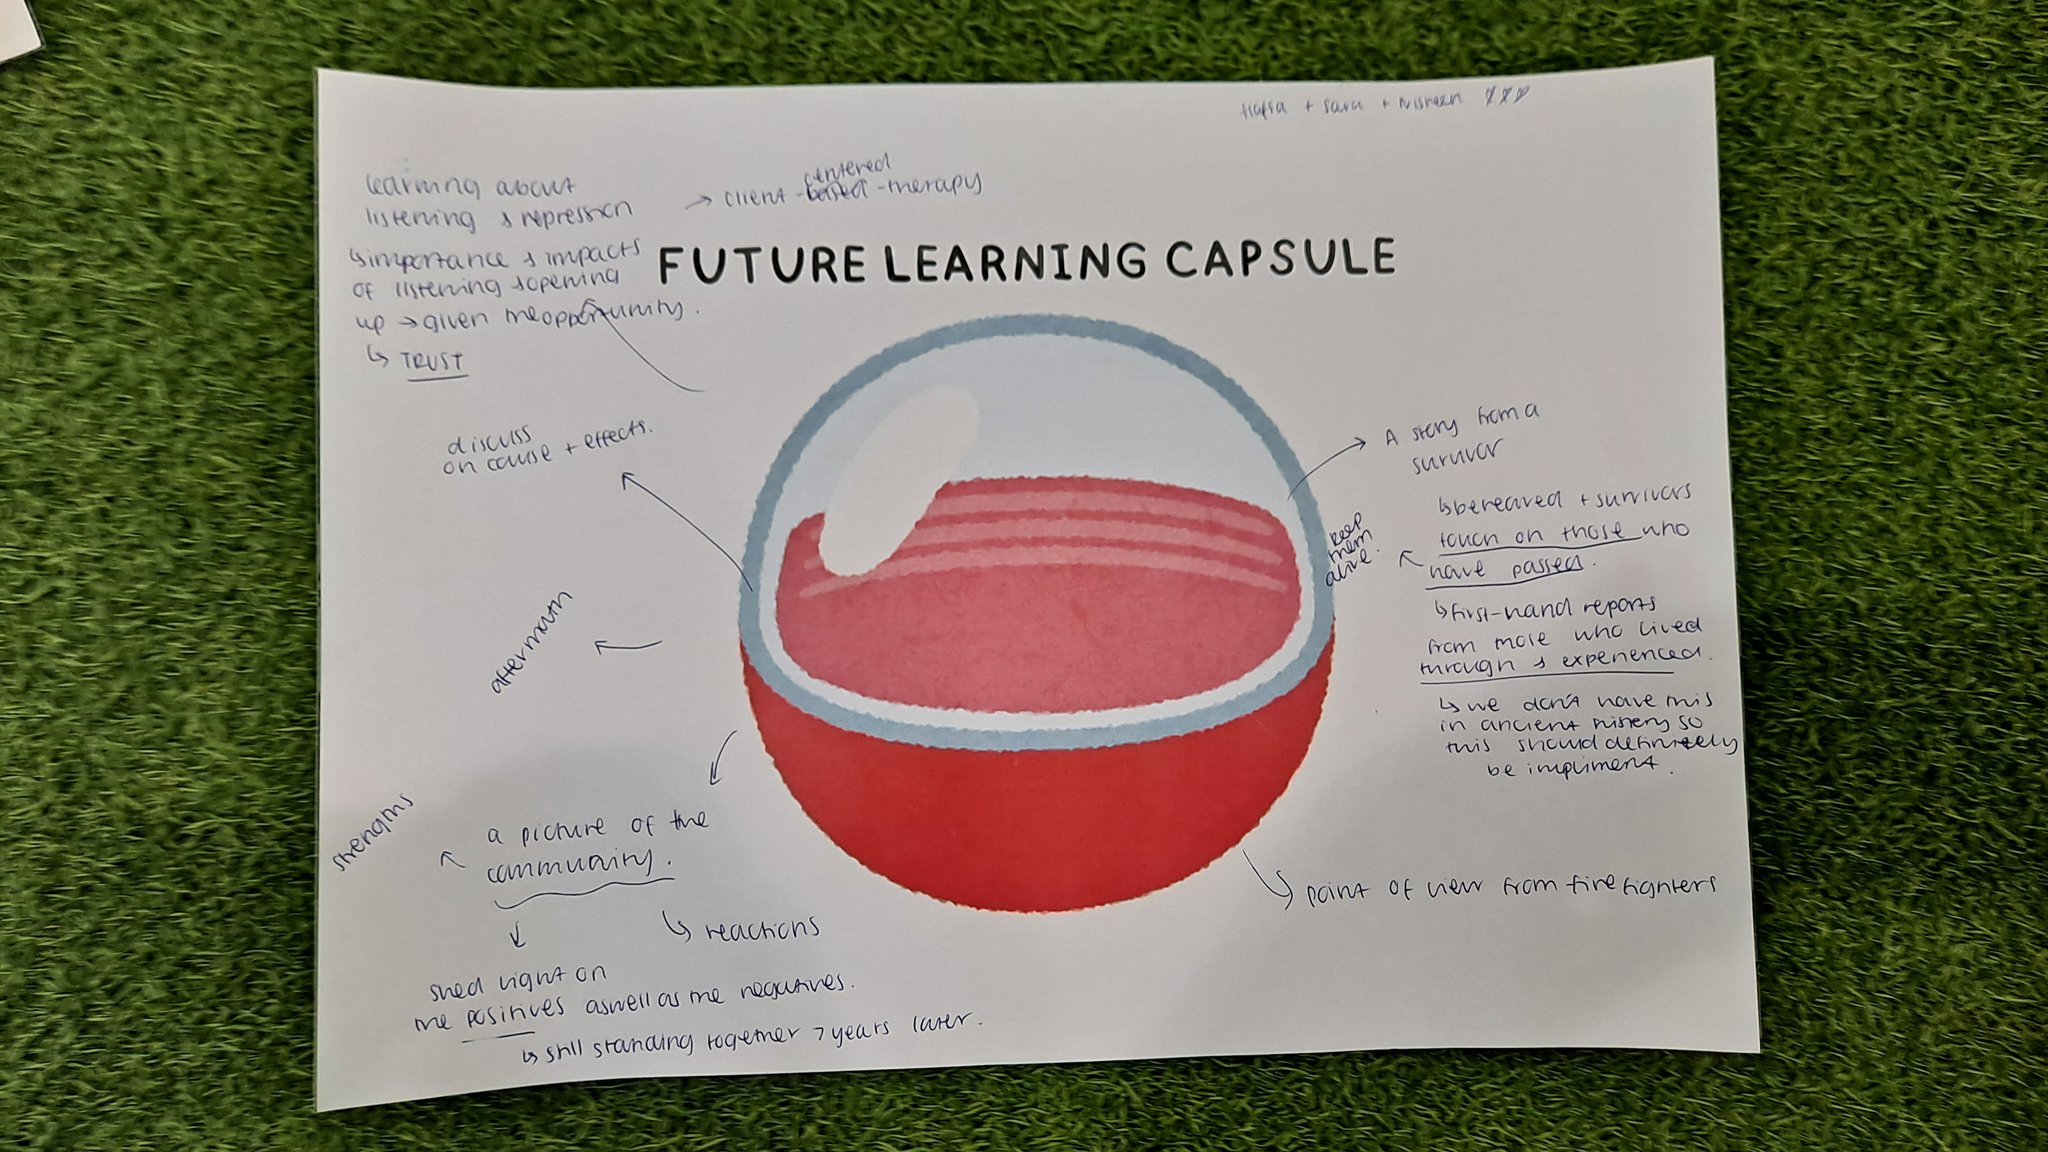 Hafsa + Sara + Nisreen
learning about
listening & repression
→ client-based-therapy
centered
↳ importance & impacts
of listening & opening
up → given the opportunity.
↳ TRUST
FUTURE LEARNING CAPSULE
discuss
on cause + effects.
aftermath
strengths
a picture of the
community.
↳ reactions
shed light on
the positives aswell as the negatives.
↳ still standing together 7 years later.
A story from a
survivor
↳ bereaved + survivors
touch on those who
have passed.
keep
them
alive.
↳ first-hand reports
from those who lived
through & experienced.
↳ we don't have this
in ancient history so
this should definitely
be impliment.
point of view from firefighters